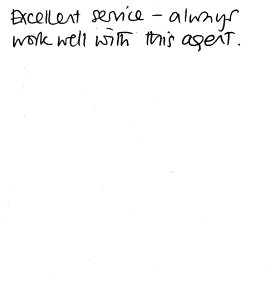 Excellent service - always
work well with this agent.